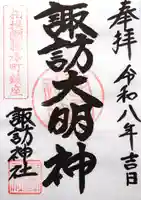 奉拝
令和八年吉日
諏訪大明神
諏訪神社